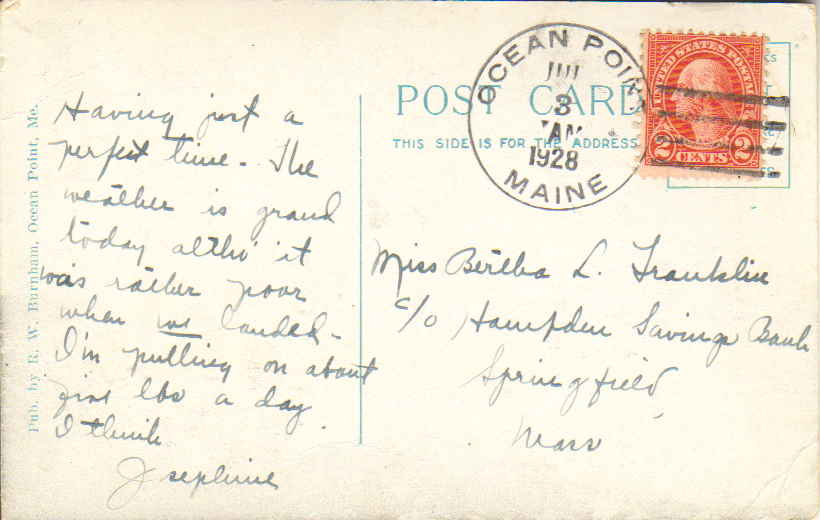 Pub. by R. W. Burnham, Ocean Point, Me.
Having just a
perfect time - The
weather is grand
today altho' it
was rather poor
when we landed -
I'm putting on about
five lbs a day
I think
Josephine
POST CARD
THIS SIDE IS FOR THE ADDRESS
OCEAN POINT
3
AM
1928
MAINE
UNITED STATES POSTAGE
2 CENTS 2
Miss Bertha L. Franklin
c/o Hampden Savings Bank
Springfield
Mass